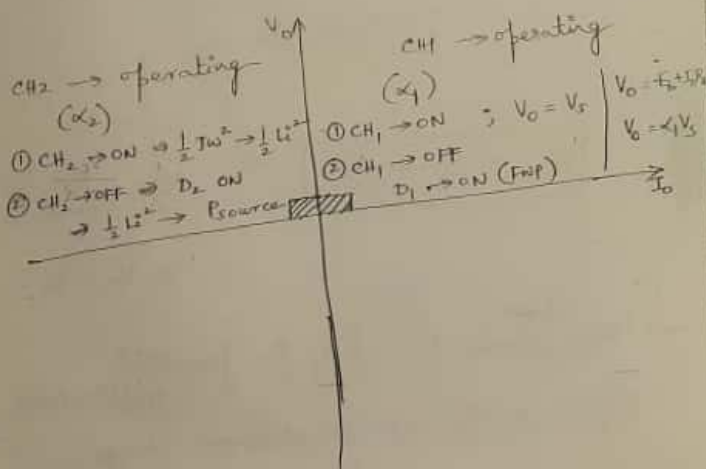 V₀
CH2 → operating
(α₂)
① CH₂ → ON ⇒ ½ Jω² → ½ Li²
② CH₂ → OFF ⇒ D₂ ON
⇒ ½ Li² → Psource
CH1 → operating
(α₁)
① CH₁ → ON ; V₀ = Vs
② CH₁ → OFF
D₁ → ON (FWP)
V₀ = α₁Vs
I₀